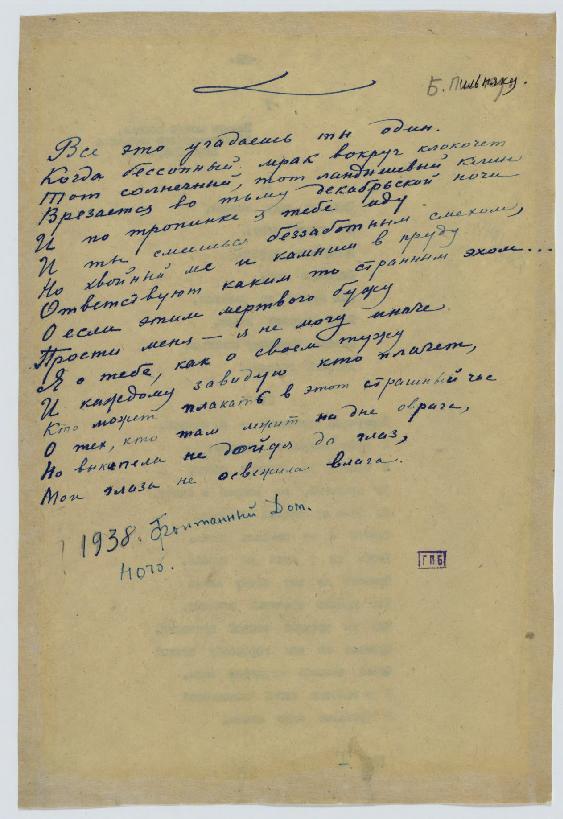 Б. Пильняку.
Все это угадаешь ты один.
Когда бессонный мрак вокруг клокочет
Тот солнечный, тот ландышевый клин
Врезается во тьму декабрьской ночи
И по тропинке я к тебе иду
И ты смеешься беззаботным смехом,
Но хвойный лес и камыши в пруду
Ответствуют каким то странным эхом...
О если этим мертвого бужу
Прости меня — я не могу иначе
Я о тебе, как о своем тужу
И каждому завидую кто плачет,
Кто может плакать в этот страшный час
О тех, кто там лежит на дне оврага,
Но выкипела не дойдя до глаз,
Мои глаза не освежила влага.
1938. Фонтанный Дом.
Ночь.
ГПБ